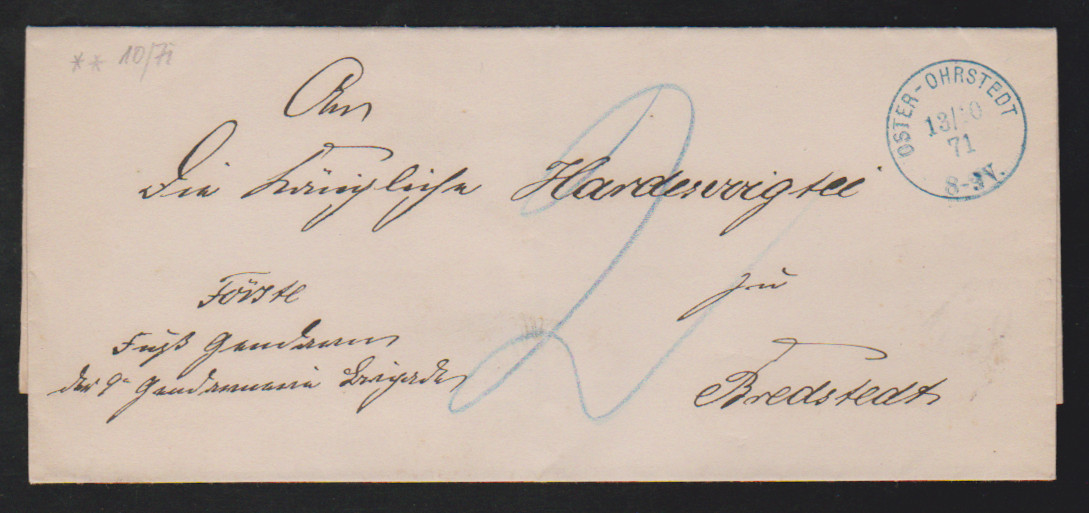 ** 10/71
An
Die Königliche Hardesvoigtei
zu
Bredstedt
Förste
Fuß Gendarm
der 9n Gendarmerie Brigade
2
OSTER-OHRSTEDT
13/10
71
8-9V.